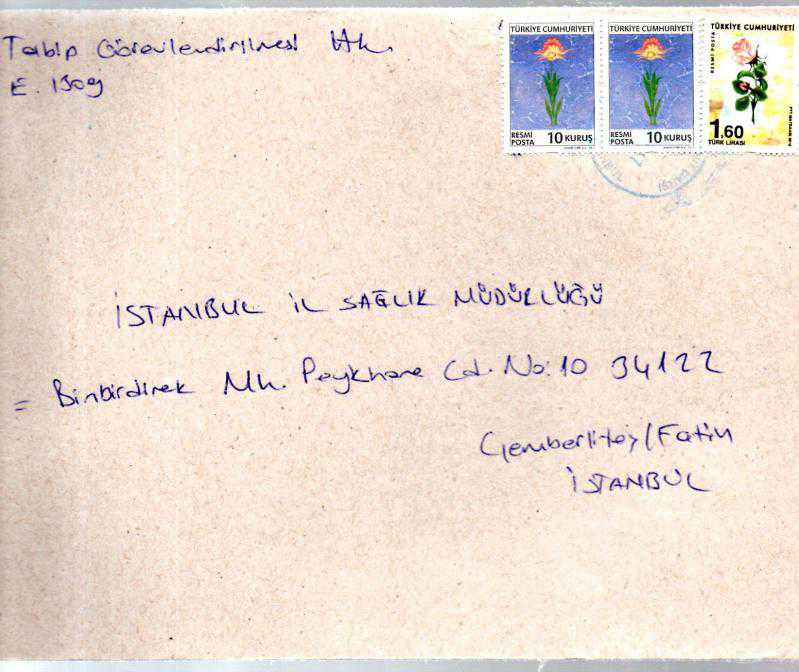 Tabip Görevlendirilmesi Hk.
E. 1309
TÜRKİYE CUMHURİYETİ
RESMİ POSTA 10 KURUŞ
TÜRKİYE CUMHURİYETİ
RESMİ POSTA 10 KURUŞ
TÜRKİYE CUMHURİYETİ
RESMİ POSTA
1.60
TÜRK LİRASI
İSTANBUL İL SAĞLIK MÜDÜRLÜĞÜ
= Binbirdirek Mh. Peykhane Cd. No:10 34122
Çemberlitaş/Fatih
İSTANBUL